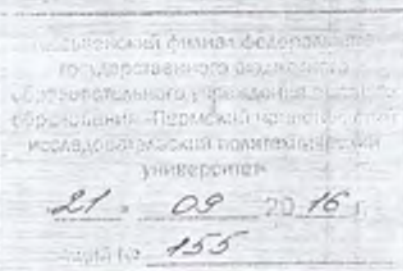 филиал федерального
государственного бюджетного
образовательного учреждения высшего
образования «Пермский национальный
исследовательский политехнический
университет»
21 » 09 20 16 г.
155